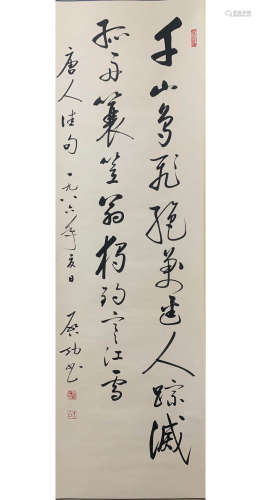 千山鸟飞绝万迳人踪滅
孤舟蓑笠翁独钓寒江雪
唐人佳句 一九八六年 亥日
启功书